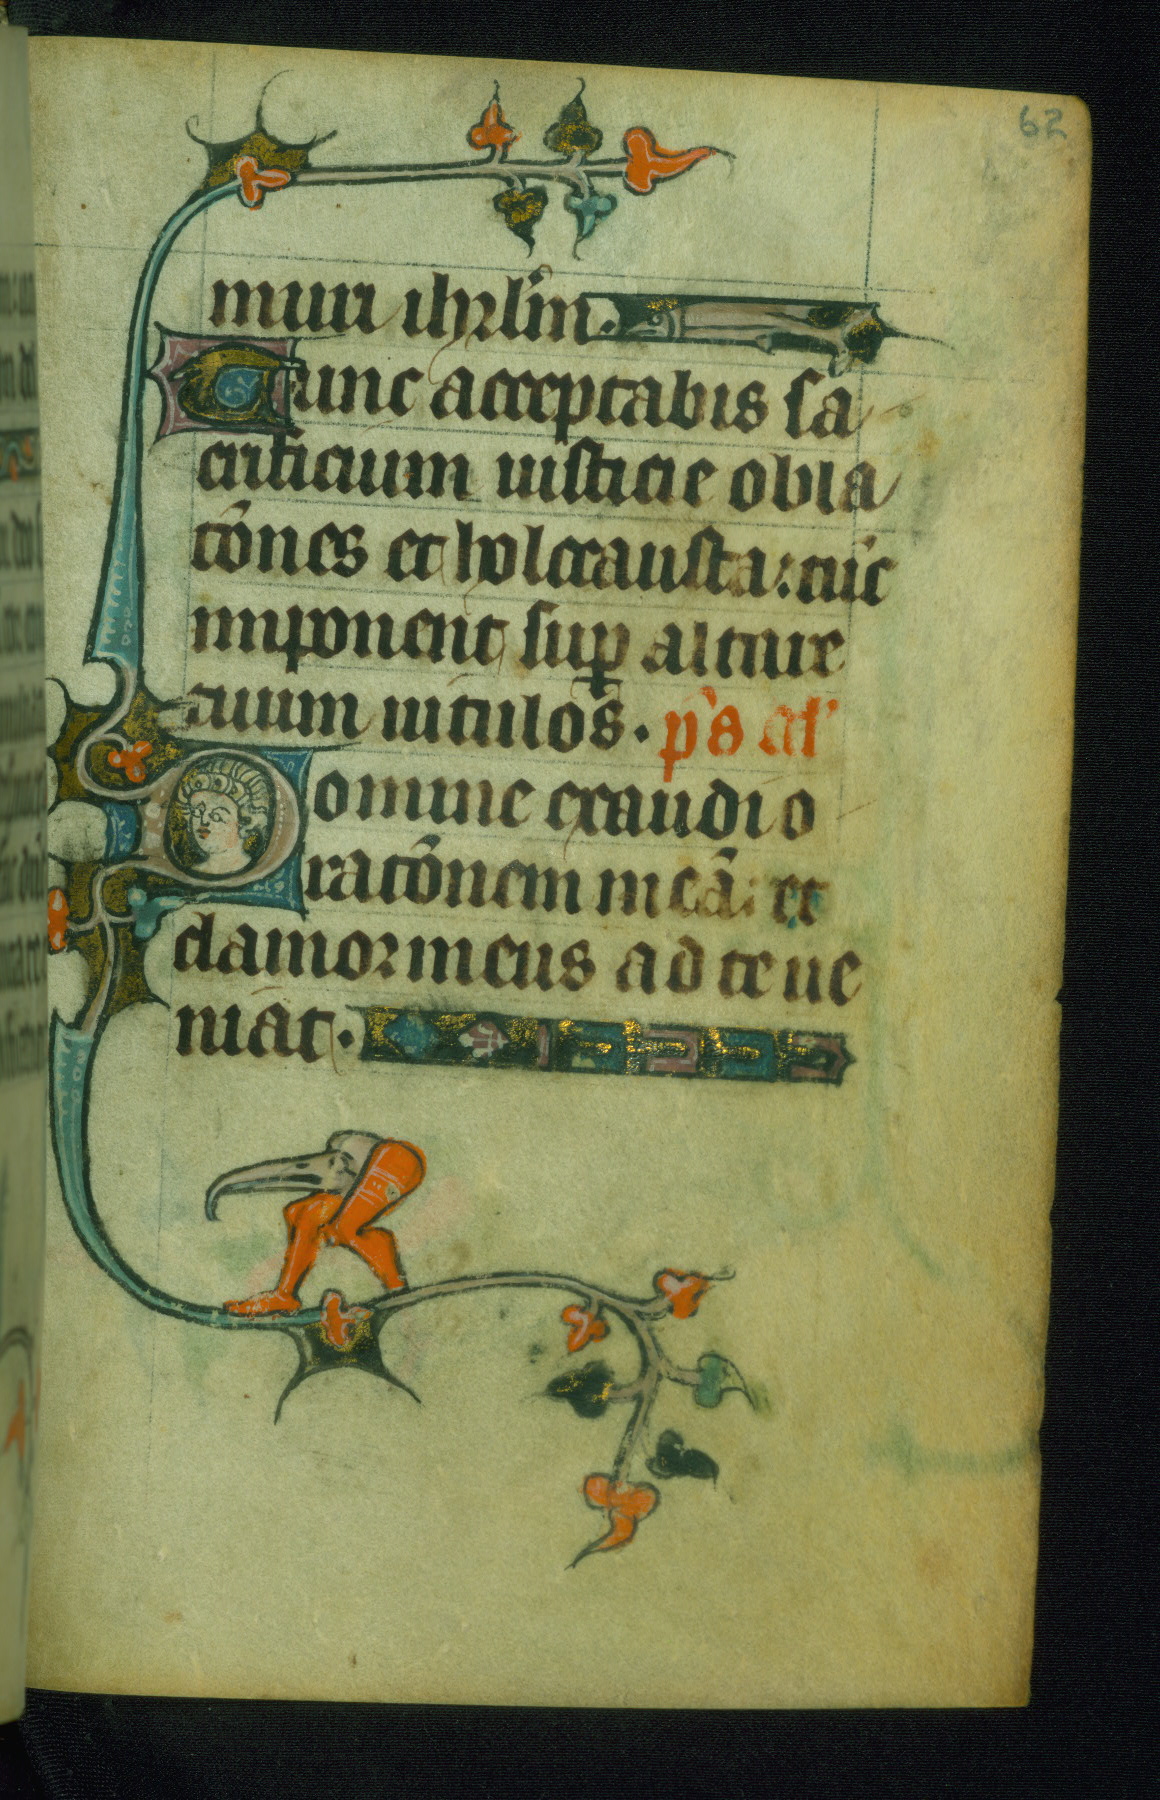 62
muri ihrl̄m.
Tunc acceptabis sa
crificium iusticie obla
tōnes et holocausta: tūc
imponent sup altare
tuum uitulos. ps al'
Domine exaudi o
ratōnem meā: et
clamor meus ad te ue
niāt.